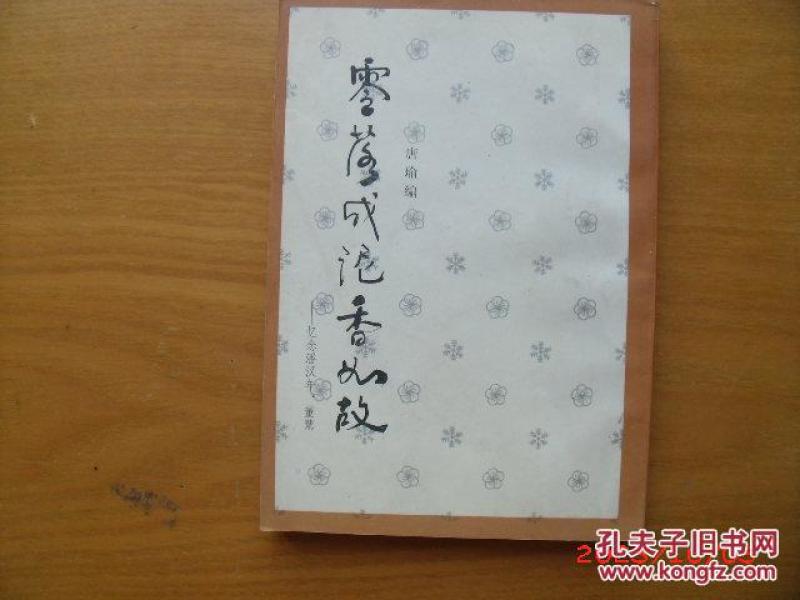 唐瑜编
零落成泥香如故
——忆念潘汉年、董慧
孔夫子旧书网
www.kongfz.com